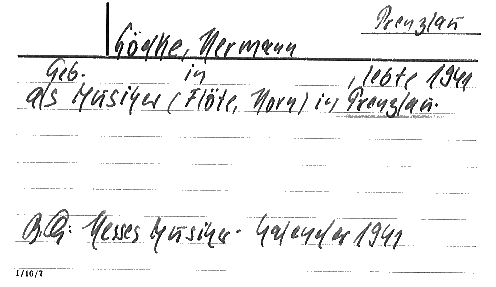 Prenzlau
Gödke, Hermann
Geb. in , lebte 1941
als Musiker (Flöte, Horn) in Prenzlau.
B.Q: Hesses Musiker-Kalender 1941
1/16/7